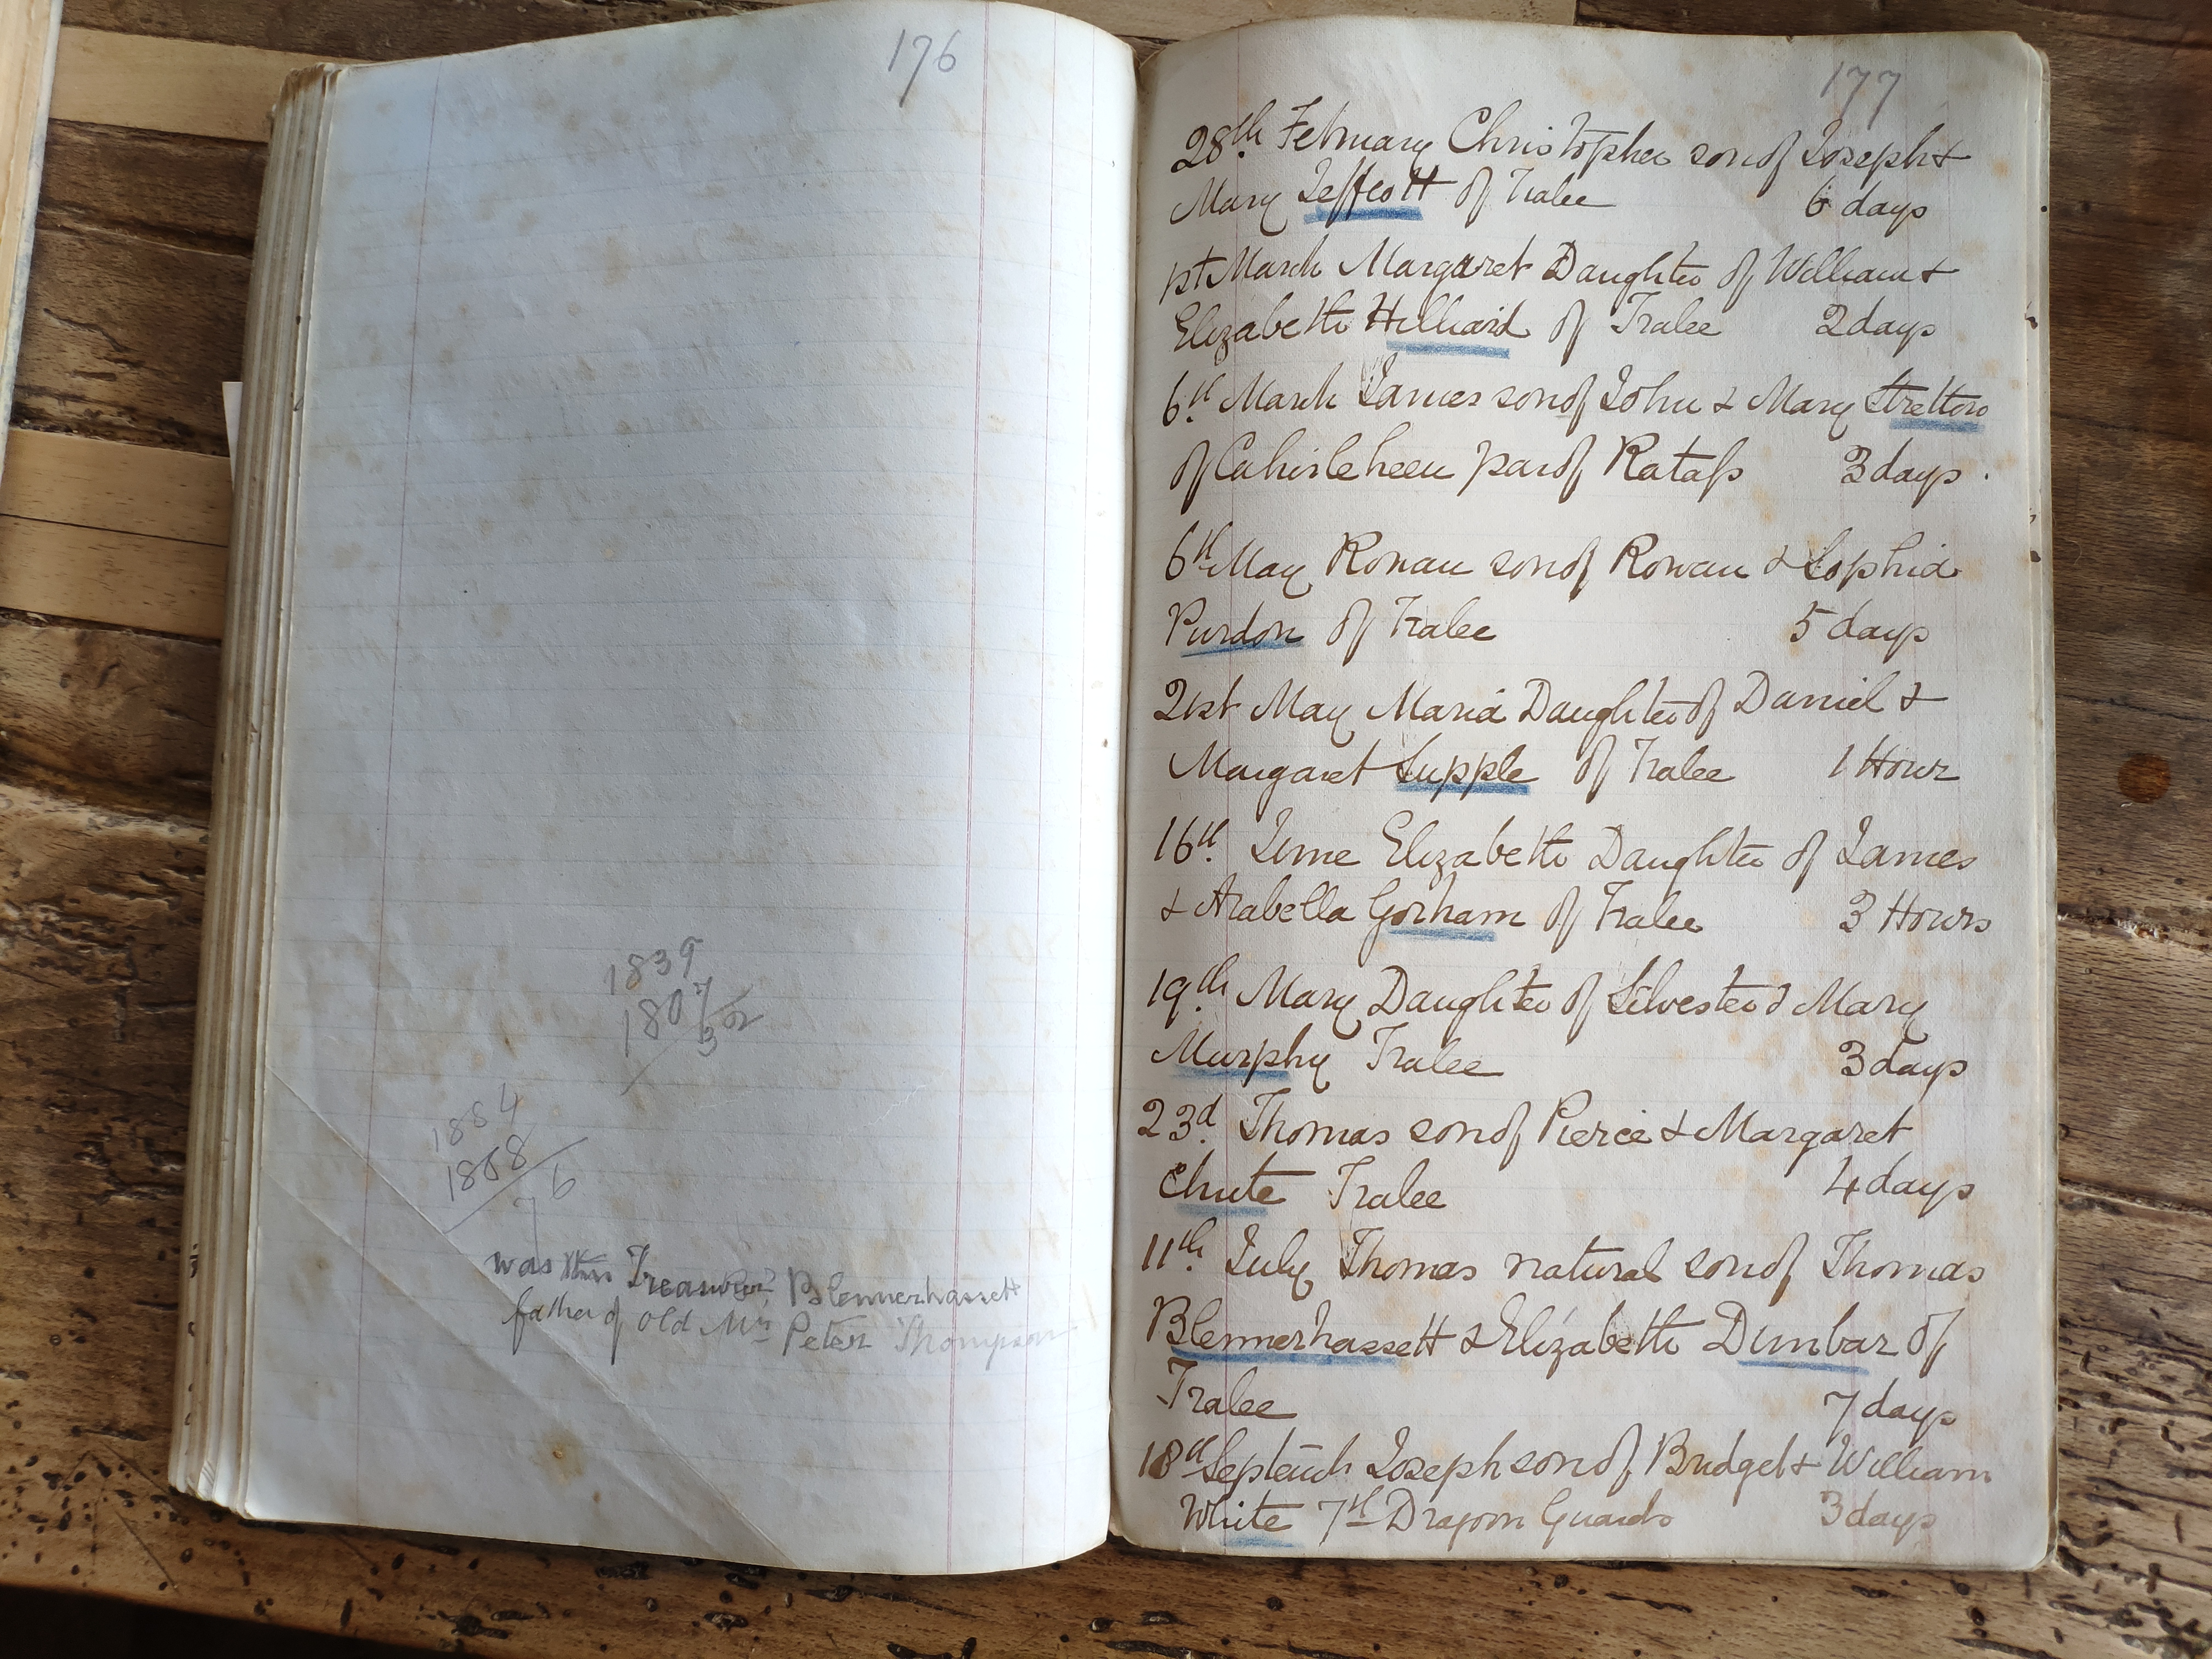 176
1839
1807
32
1884
1808
76
was this Treasurer Blennerhassett
father of old Mrs Peter Thompson
177
28th February Christopher son of Joseph &
Mary Jeffcott of Tralee 6 days
1st March Margaret Daughter of William &
Elizabeth Hilliard of Tralee 2 days
6th March James son of John & Mary Stretton
of Cahirleheen par of Ratass 3 days
6th May Rowan son of Rowan & Sophia
Purdon of Tralee 5 days
21st May Maria Daughter of Daniel &
Margaret Supple of Tralee 1 Hour
16th June Elizabeth Daughter of James
& Arabella Gorham of Tralee 3 Hours
19th Mary Daughter of Silvester & Mary
Murphy Tralee 3 days
23d Thomas son of Pierce & Margaret
Chute Tralee 4 days
11th July Thomas natural son of Thomas
Blennerhassett & Elizabeth Dunbar of
Tralee 7 days
18th Joseph son of Bridget & William
White 7th Dragoon Guards 3 days